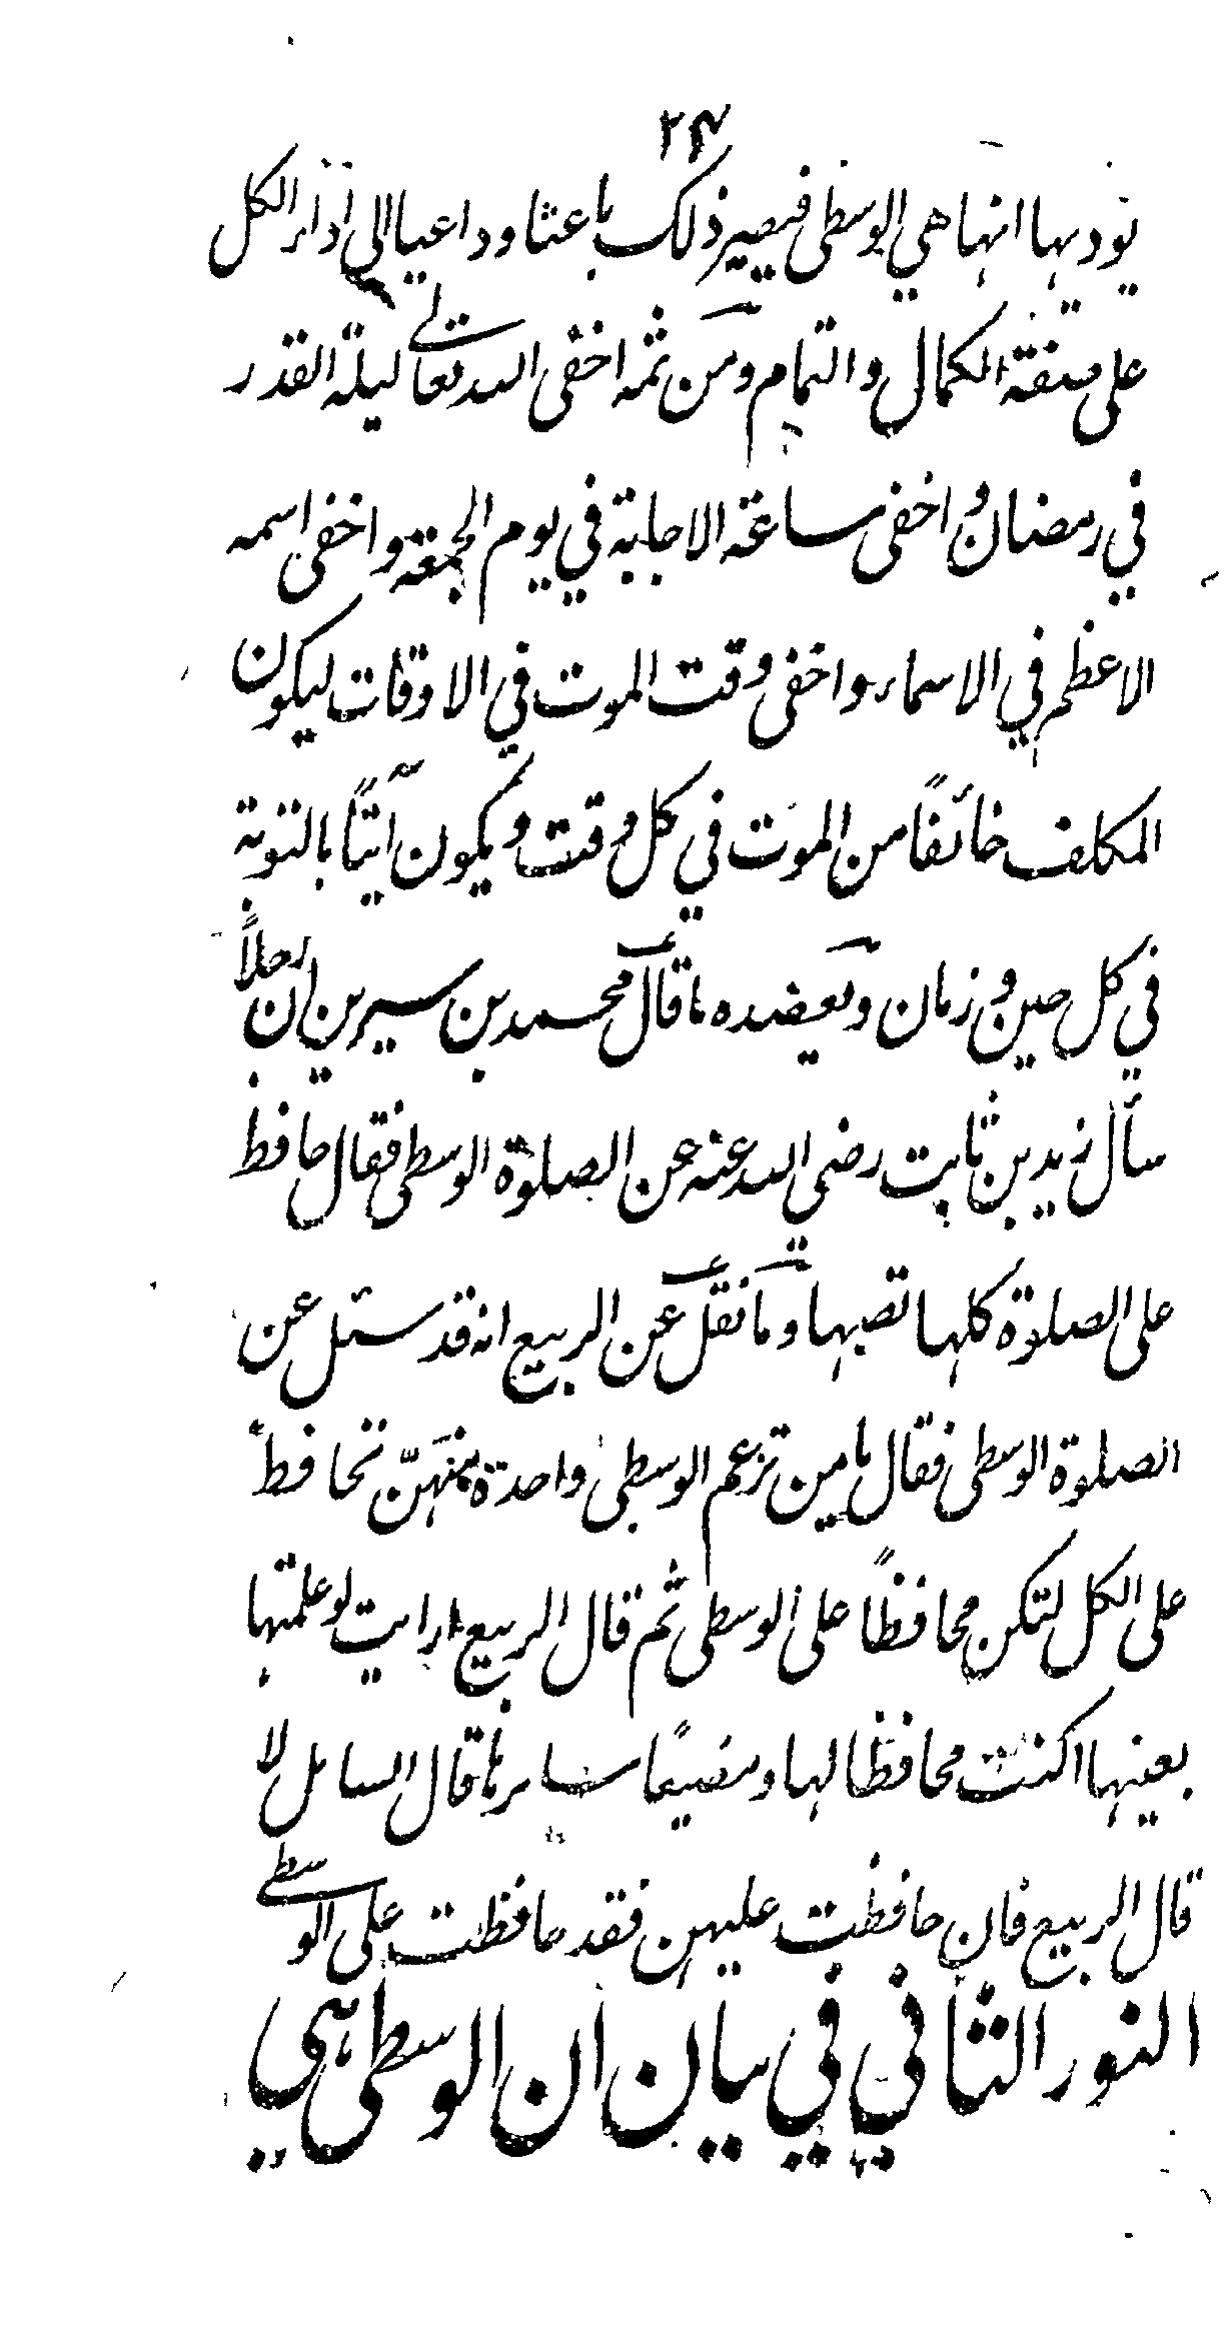 ۲۴
يوديها انها هي الوسطى فيصير ذلك باعثا وداعيا الى اداء الكل
على صفة الكمال والتمام ومن ثمه اخفى الله تعالى ليلة القدر
في رمضان واخفى ساعة الاجابة في يوم الجمعة واخفى اسمه
الاعظم في الاسماء واخفى وقت الموت في الاوقات ليكون
المكلف خائفًا من الموت في كل وقت ويكون آتيًا بالتوبة
في كل حين وزمان ويعضده ما قال محمد بن سيرين ان رجلاً
سأل زيد بن ثابت رضي الله عنه عن الصلوة الوسطى فقال حافظ
على الصلوة كلها تصبها وما نقل عن الربيع انه قد سئل عن
الصلوة الوسطى فقال يا من تزعم الوسطى واحدة منهنّ تحافظ
على الكل لتكن محافظًا على الوسطى ثم قال الربيع ارايت لو علمتها
بعينها اكنت محافظا لها ومضيعًا سايرها قال السايل لا
قال الربيع فان حافظت عليهن فقد حافظت على الوسطى
النور الثاني في بيان ان الوسطى هي